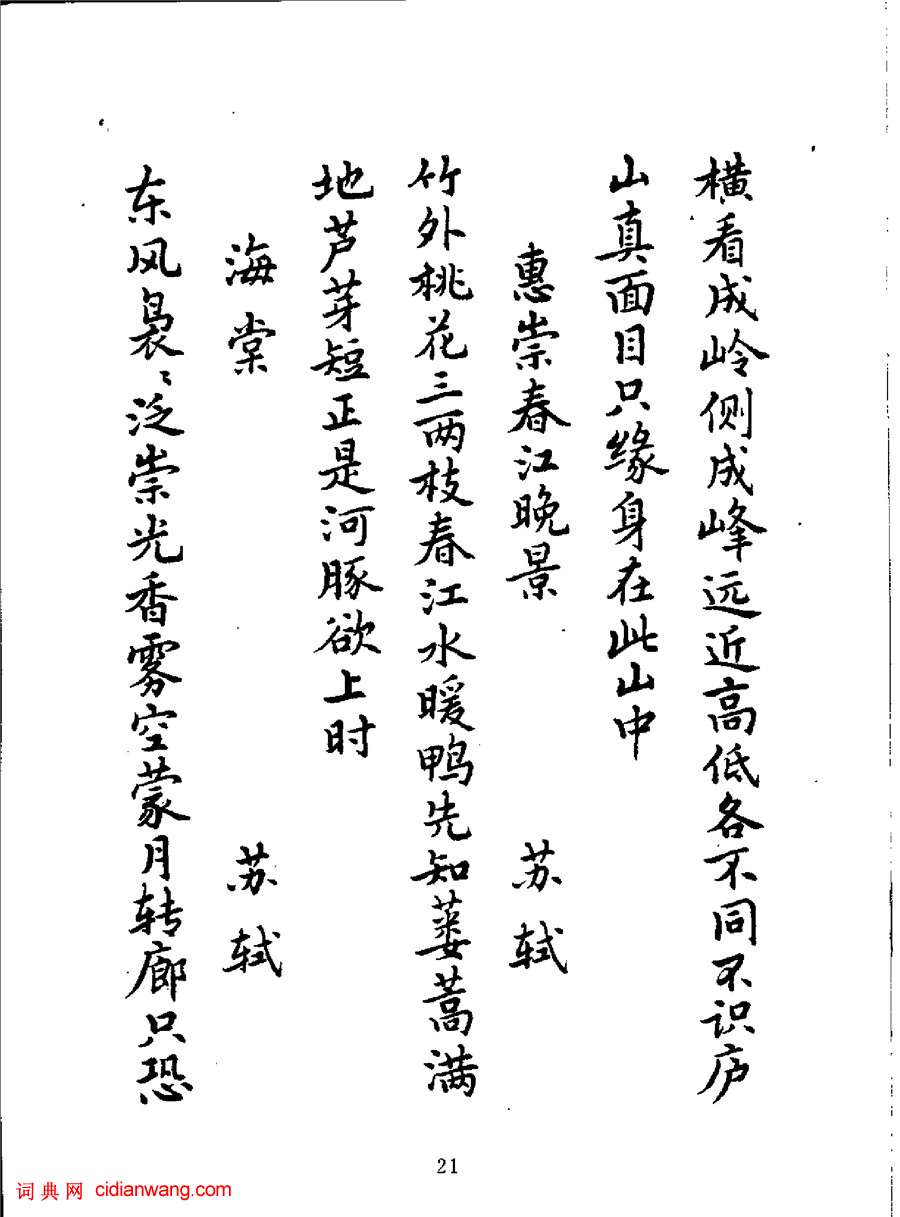 横看成岭侧成峰远近高低各不同不识庐
山真面目只缘身在此山中
惠崇春江晚景 苏轼
竹外桃花三两枝春江水暖鸭先知蒌蒿满
地芦芽短正是河豚欲上时
海棠 苏轼
东风袅〻泛崇光香雾空蒙月转廊只恐
21
词典网 cidianwang.com